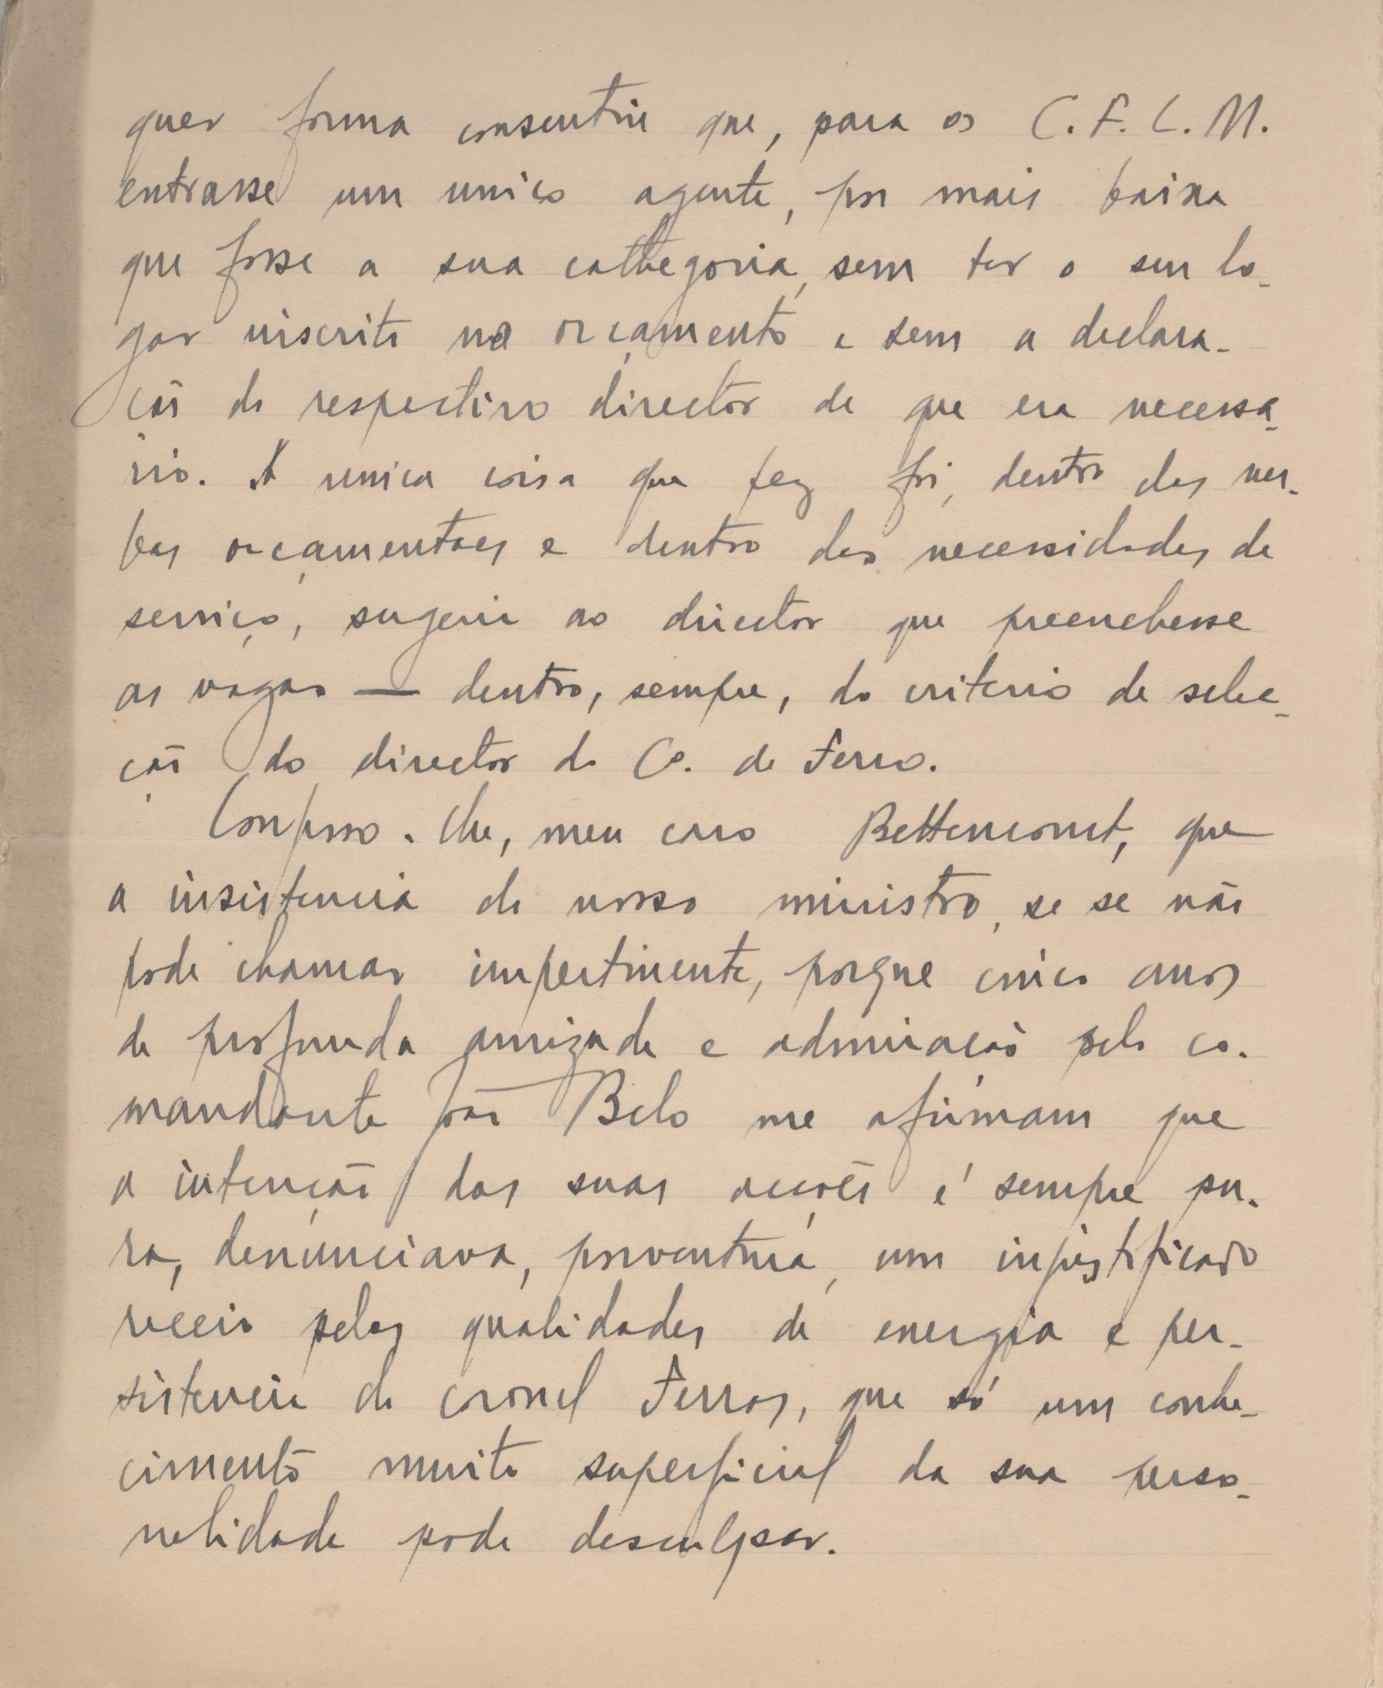 quer forma consentiu que, para os C. F. L. M.
entrasse um unico agente, por mais baixa
que fosse a sua cathegoria, sem ter o seu lo-
gar inscrito no orçamento e sem a declara-
ção do respectivo director de que era necessa-
rio. A unica coisa que fez foi, dentro das ver-
bas orçamentaes e dentro das necessidades do
serviço, sugerir ao director que preenchesse
as vagas — dentro, sempre, do criterio de selec-
ção do director do C. de Ferro.
Confesso-lhe, meu caro Bettencourt, que
a insistencia do nosso ministro, se se não
pode chamar impertinente, porque cinco anos
de profunda amizade e admiração pelo co-
mandante João Belo me afirmam que
a intenção das suas acções é sempre pu-
ra, denunciava, porventura, um injustificado
receio pelas qualidades de energia e per-
sistencia do coronel Ferraz, que só um conhe-
cimento muito superficial da sua perso-
nalidade pode desculpar.